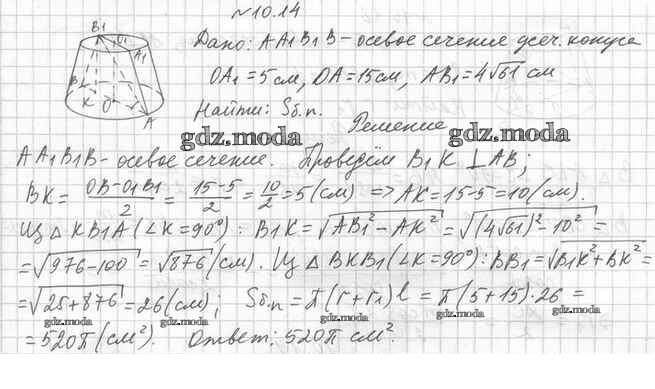 №10.14
B₁ O₁ A₁
Дано: AA₁B₁B - осевое сечение усеч. конуса
OA₁ = 5 см, OA = 15 см, AB₁ = 4√61 см
Найти: Sб.п.
B K O A
Решение
gdz.moda gdz.moda
AA₁B₁B - осевое сечение. Проведём B₁K ⊥ AB;
BK = (OB - O₁B₁)/2 = (15-5)/2 = 10/2 = 5 (см) => AK = 15-5 = 10 (см).
Из △ KB₁A (∠K = 90°): B₁K = √(AB₁² - AK²) = √((4√61)² - 10²) =
= √(976-100) = √876 (см). Из △ BKB₁ (∠K = 90°): BB₁ = √(B₁K² + BK²) =
gdz.moda gdz.moda
= √(25+876) = 26 (см); Sб.п = π(r+r₁)l = π(5+15)·26 =
gdz.moda gdz.moda gdz.moda
= 520π (см²). Ответ: 520π см².
gdz.moda gdz.moda